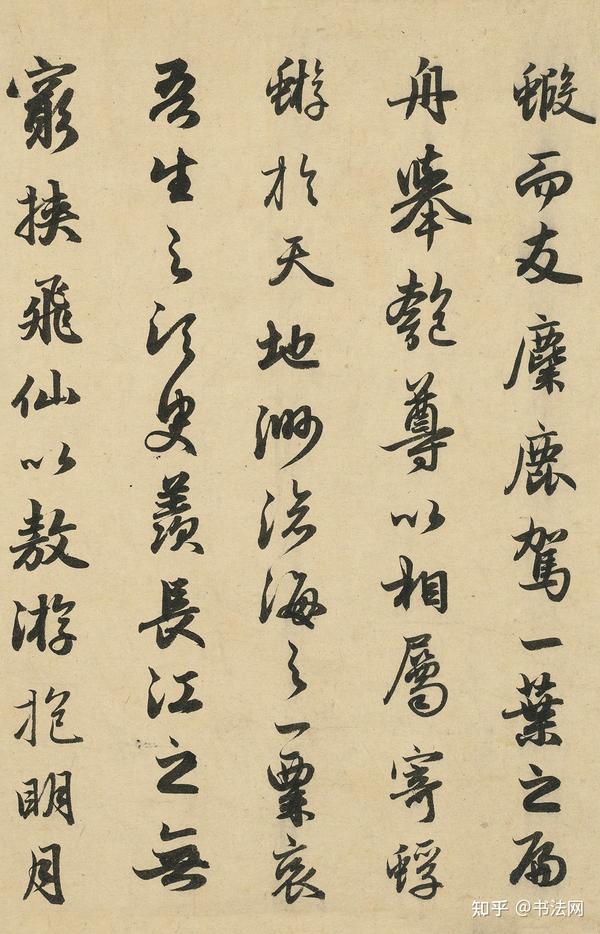 蝦而友麋鹿駕一葉之扁
舟舉匏尊以相屬寄蜉
蝣於天地渺滄海之一粟哀
吾生之須臾羨長江之無
窮挾飛仙以敖游抱明月
知乎 @书法网